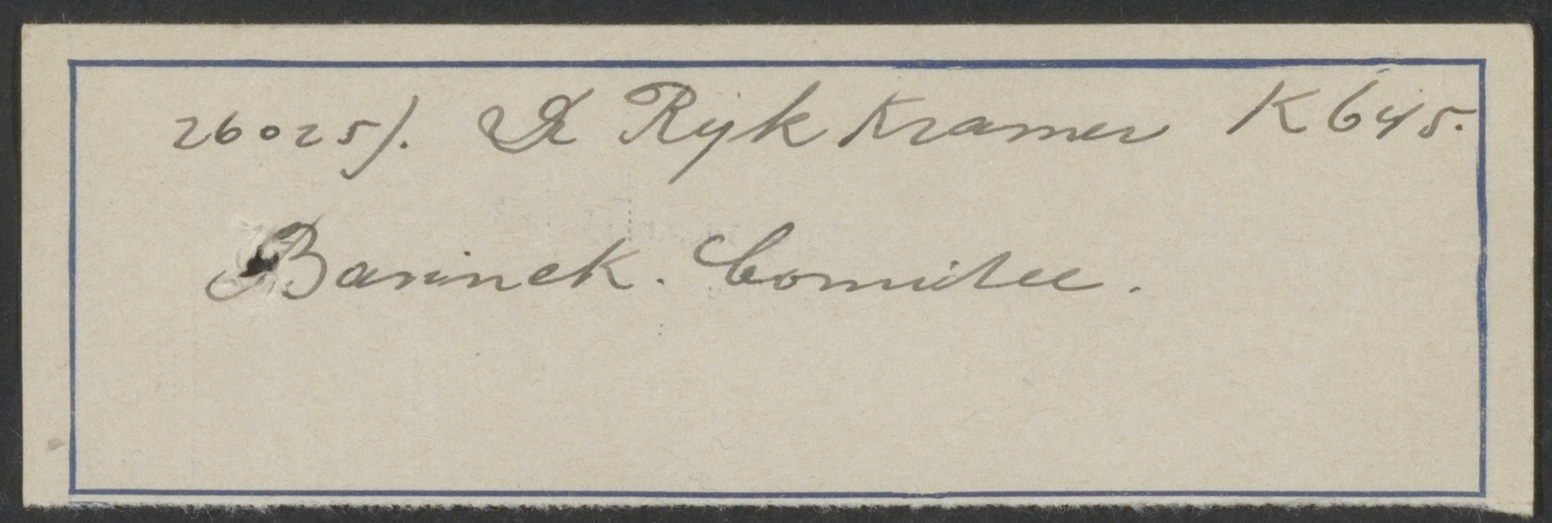 26025/. Dr Rijk Kramer K645.
Barinck. Comitee.